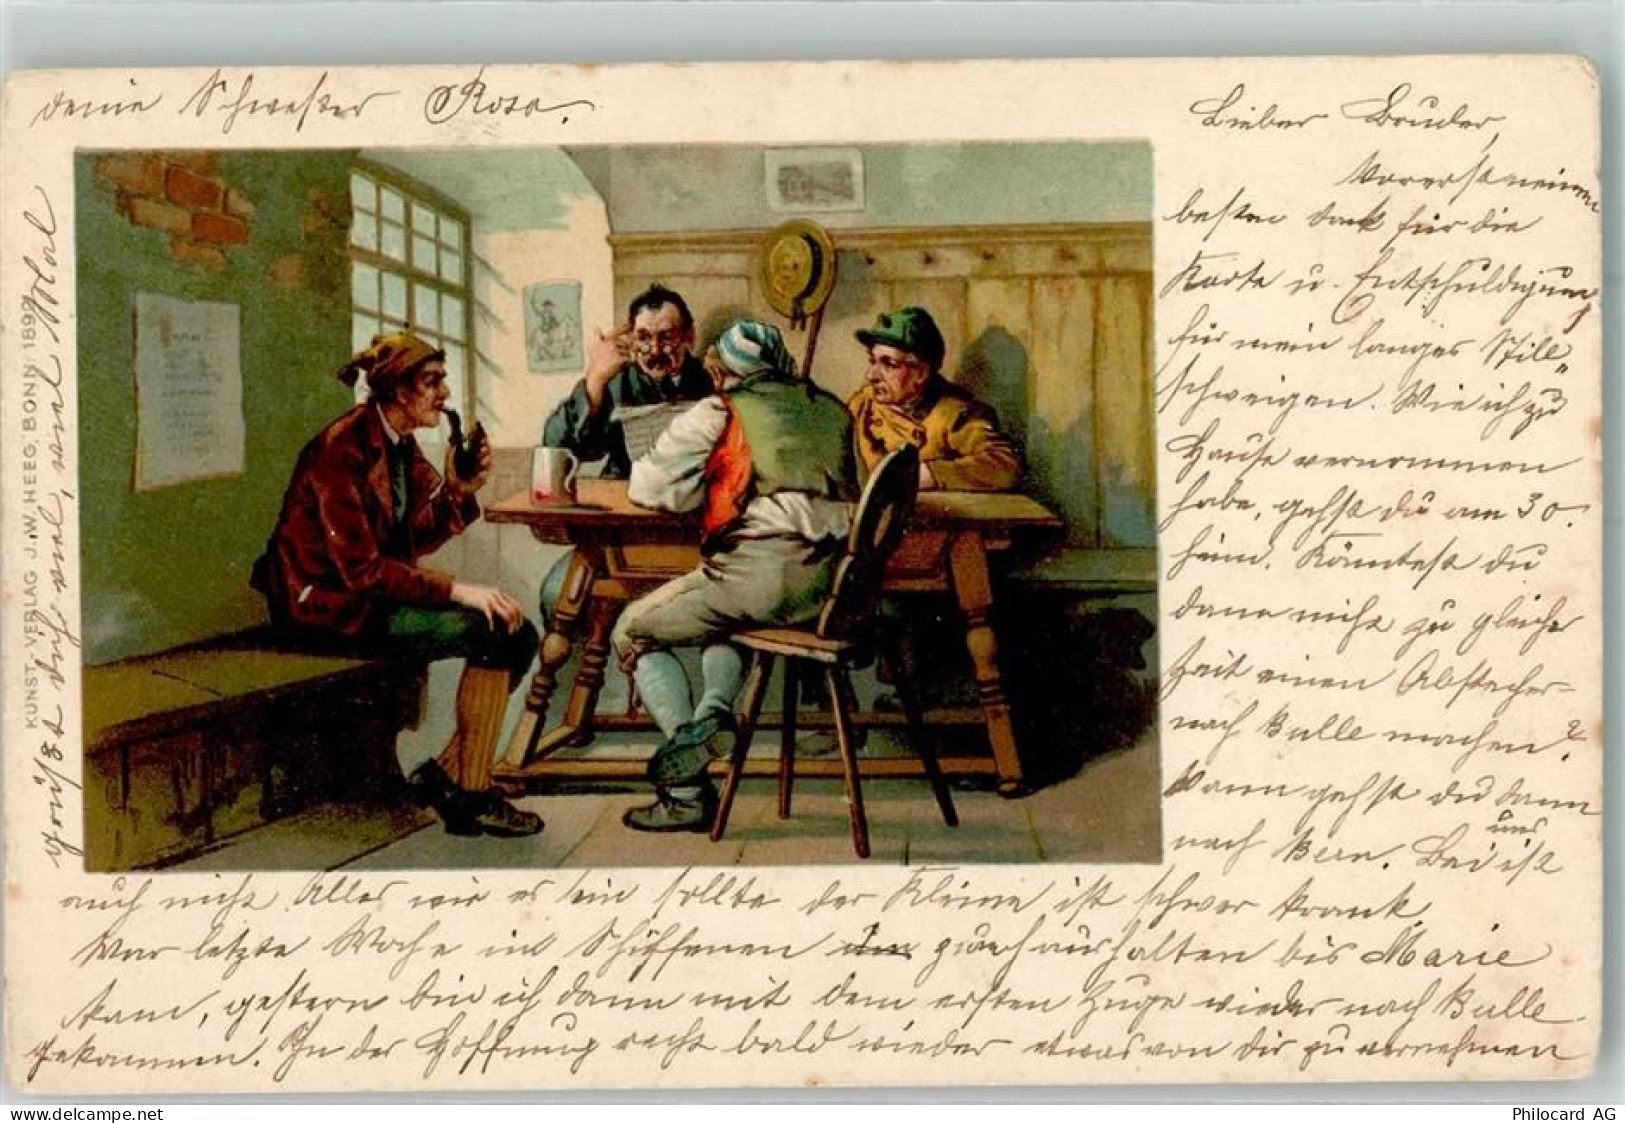 Lieber Bruder,
Vorerst meinen
besten Dank für die
Karte u. Entschuldigung
für mein langes Still„
schweigen. Wie ich zu
Hause vernommen
habe, gehst du am 30.
heim. Könntest du
dann nicht zu gleicher
Zeit einen Abstecher
nach Bulle machen?
Wann gehst du dann
nach Bern. Bei uns ist
auch nicht Alles wie es sein sollte der Kleine ist schwer krank.
War letzte Woche in zum aushalten bis Marie
kam, gestern bin ich dann mit dem ersten Zuge wieder nach Bulle
gekommen. In der Hoffnung recht bald wieder etwas von dir zu vernehmen
grüßt dich viel, viel Mal
deine Schwester Rosa.
KUNST-VERLAG J.W. HEEG, BONN 1899
Philocard AG
www.delcampe.net